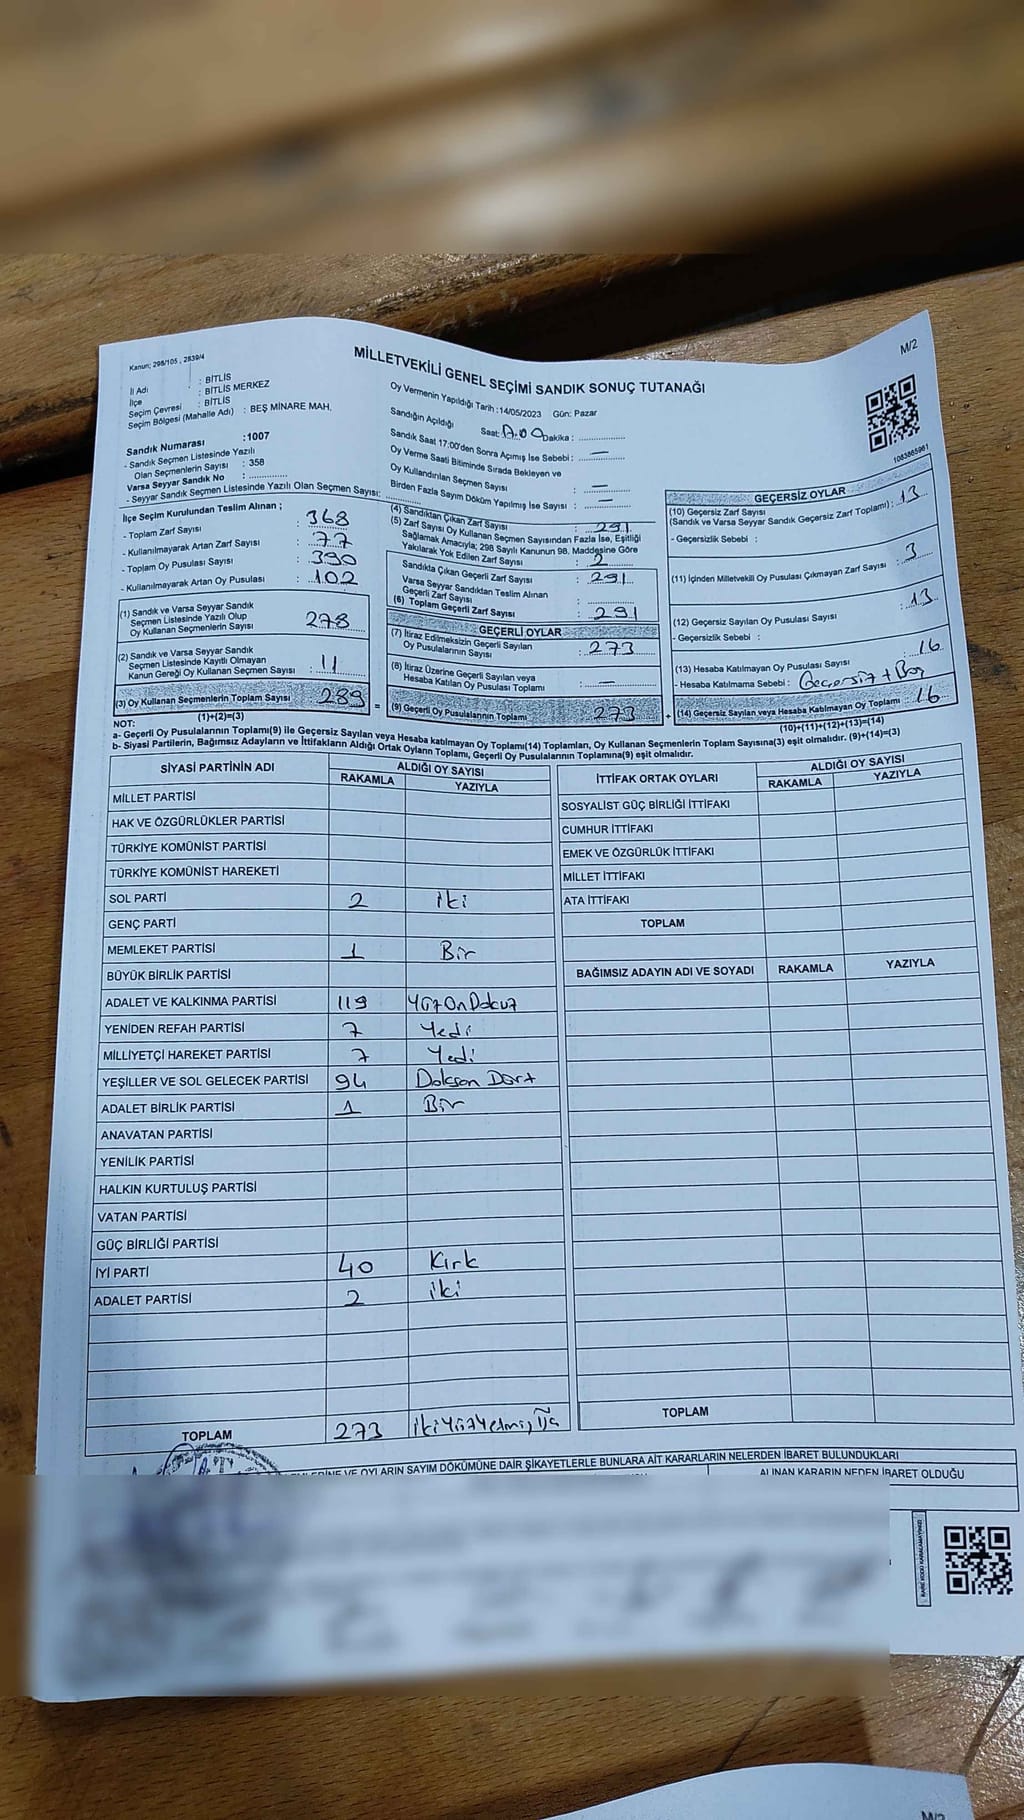 M/2
Kanun; 298/105 , 2839/4
MİLLETVEKİLİ GENEL SEÇİMİ SANDIK SONUÇ TUTANAĞI
İl Adı : BİTLİS
İlçe : BİTLİS MERKEZ
Seçim Çevresi : BİTLİS
Seçim Bölgesi (Mahalle Adı) : BEŞ MİNARE MAH.
Sandık Numarası :1007
- Sandık Seçmen Listesinde Yazılı
Olan Seçmenlerin Sayısı : 358
Varsa Seyyar Sandık No :
- Seyyar Sandık Seçmen Listesinde Yazılı Olan Seçmen Sayısı:
Oy Vermenin Yapıldığı Tarih :14/05/2023 Gün: Pazar
Sandığın Açıldığı Saat: Dakika :
Sandık Saat 17:00'den Sonra Açımış İse Sebebi : —
Oy Verme Saati Bitiminde Sırada Bekleyen ve
Oy Kullandırılan Seçmen Sayısı : —
Birden Fazla Sayım Döküm Yapılmış İse Sayısı : —
1083865961
İlçe Seçim Kurulundan Teslim Alınan ;
- Toplam Zarf Sayısı : 368
- Kullanılmayarak Artan Zarf Sayısı : 77
- Toplam Oy Pusulası Sayısı : 390
- Kullanılmayarak Artan Oy Pusulası : 102
(1) Sandık ve Varsa Seyyar Sandık
Seçmen Listesinde Yazılı Olup
Oy Kullanan Seçmenlerin Sayısı : 278
(2) Sandık ve Varsa Seyyar Sandık
Seçmen Listesinde Kayıtlı Olmayan
Kanun Gereği Oy Kullanan Seçmen Sayısı : 11
(3) Oy Kullanan Seçmenlerin Toplam Sayısı : 289
(1)+(2)=(3)
(4) Sandıktan Çıkan Zarf Sayısı : 291
(5) Zarf Sayısı Oy Kullanan Seçmen Sayısından Fazla İse, Eşitliği
Sağlamak Amacıyla; 298 Sayılı Kanunun 98. Maddesine Göre
Yakılarak Yok Edilen Zarf Sayısı : 2
Sandıkta Çıkan Geçerli Zarf Sayısı : 291
Varsa Seyyar Sandıktan Teslim Alınan
Geçerli Zarf Sayısı :
(6) Toplam Geçerli Zarf Sayısı : 291
GEÇERLİ OYLAR
(7) İtiraz Edilmeksizin Geçerli Sayılan
Oy Pusulalarının Sayısı : 273
(8) İtiraz Üzerine Geçerli Sayılan veya
Hesaba Katılan Oy Pusulası Toplamı : —
= (9) Geçerli Oy Pusulalarının Toplamı : 273
GEÇERSİZ OYLAR
(10) Geçersiz Zarf Sayısı
(Sandık ve Varsa Seyyar Sandık Geçersiz Zarf Toplamı) : 13
- Geçersizlik Sebebi :
(11) İçinden Milletvekili Oy Pusulası Çıkmayan Zarf Sayısı : 3
(12) Geçersiz Sayılan Oy Pusulası Sayısı : 13
- Geçersizlik Sebebi :
(13) Hesaba Katılmayan Oy Pusulası Sayısı : 16
- Hesaba Katılmama Sebebi : Geçersiz + Boş
+ (14) Geçersiz Sayılan veya Hesaba Katılmayan Oy Toplamı : 16
(10)+(11)+(12)+(13)=(14)
NOT:
a- Geçerli Oy Pusulalarının Toplamı(9) ile Geçersiz Sayılan veya Hesaba katılmayan Oy Toplamı(14) Toplamları, Oy Kullanan Seçmenlerin Toplam Sayısına(3) eşit olmalıdır. (9)+(14)=(3)
b- Siyasi Partilerin, Bağımsız Adayların ve İttifakların Aldığı Ortak Oyların Toplamı, Geçerli Oy Pusulalarının Toplamına(9) eşit olmalıdır.
SİYASİ PARTİNİN ADI ALDIĞI OY SAYISI
RAKAMLA YAZIYLA
MİLLET PARTİSİ
HAK VE ÖZGÜRLÜKLER PARTİSİ
TÜRKİYE KOMÜNİST PARTİSİ
TÜRKİYE KOMÜNİST HAREKETİ
SOL PARTİ 2 iki
GENÇ PARTİ
MEMLEKET PARTİSİ 1 Bir
BÜYÜK BİRLİK PARTİSİ
ADALET VE KALKINMA PARTİSİ 119 YüzOnDokuz
YENİDEN REFAH PARTİSİ 7 Yedi
MİLLİYETÇİ HAREKET PARTİSİ 7 Yedi
YEŞİLLER VE SOL GELECEK PARTİSİ 94 Doksan Dört
ADALET BİRLİK PARTİSİ 1 Bir
ANAVATAN PARTİSİ
YENİLİK PARTİSİ
HALKIN KURTULUŞ PARTİSİ
VATAN PARTİSİ
GÜÇ BİRLİĞİ PARTİSİ
İYİ PARTİ 40 Kırk
ADALET PARTİSİ 2 iki
TOPLAM 273 ikiYüzYetmiş Üç
İTTİFAK ORTAK OYLARI ALDIĞI OY SAYISI
RAKAMLA YAZIYLA
SOSYALİST GÜÇ BİRLİĞİ İTTİFAKI
CUMHUR İTTİFAKI
EMEK VE ÖZGÜRLÜK İTTİFAKI
MİLLET İTTİFAKI
ATA İTTİFAKI
TOPLAM
BAĞIMSIZ ADAYIN ADI VE SOYADI RAKAMLA YAZIYLA
TOPLAM
VE OYLARIN SAYIM DÖKÜMÜNE DAİR ŞİKAYETLERLE BUNLARA AİT KARARLARIN NELERDEN İBARET BULUNDUKLARI
ALINAN KARARIN NEDEN İBARET OLDUĞU
M/2